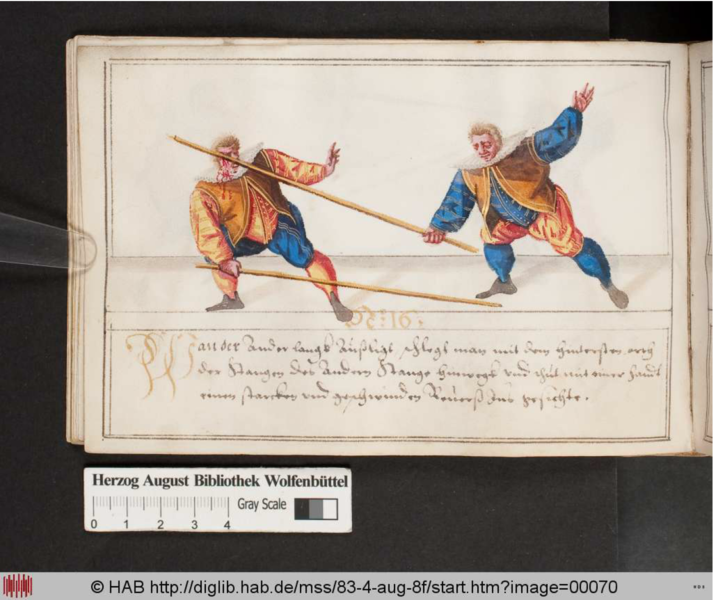 St: 16.
Wan der Ander langk Außligt, schlegt man mit dem hindersten orth
der Stangen des Andern Stange hinwegk und thut mit einer handt
einen starcken und geschwinden Reuerß Ins gesichte.
Herzog August Bibliothek Wolfenbüttel
Gray Scale
0 1 2 3 4
© HAB http://diglib.hab.de/mss/83-4-aug-8f/start.htm?image=00070